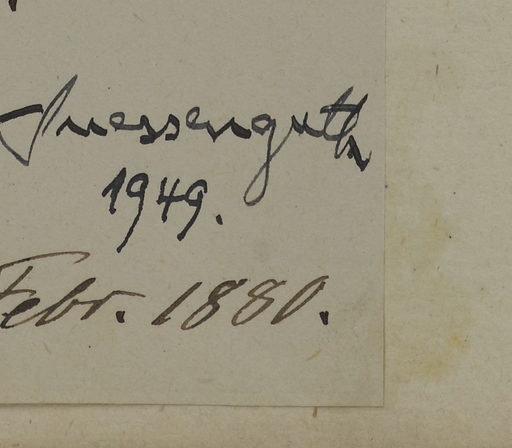 Suessenguth
1949.
Febr. 1880.